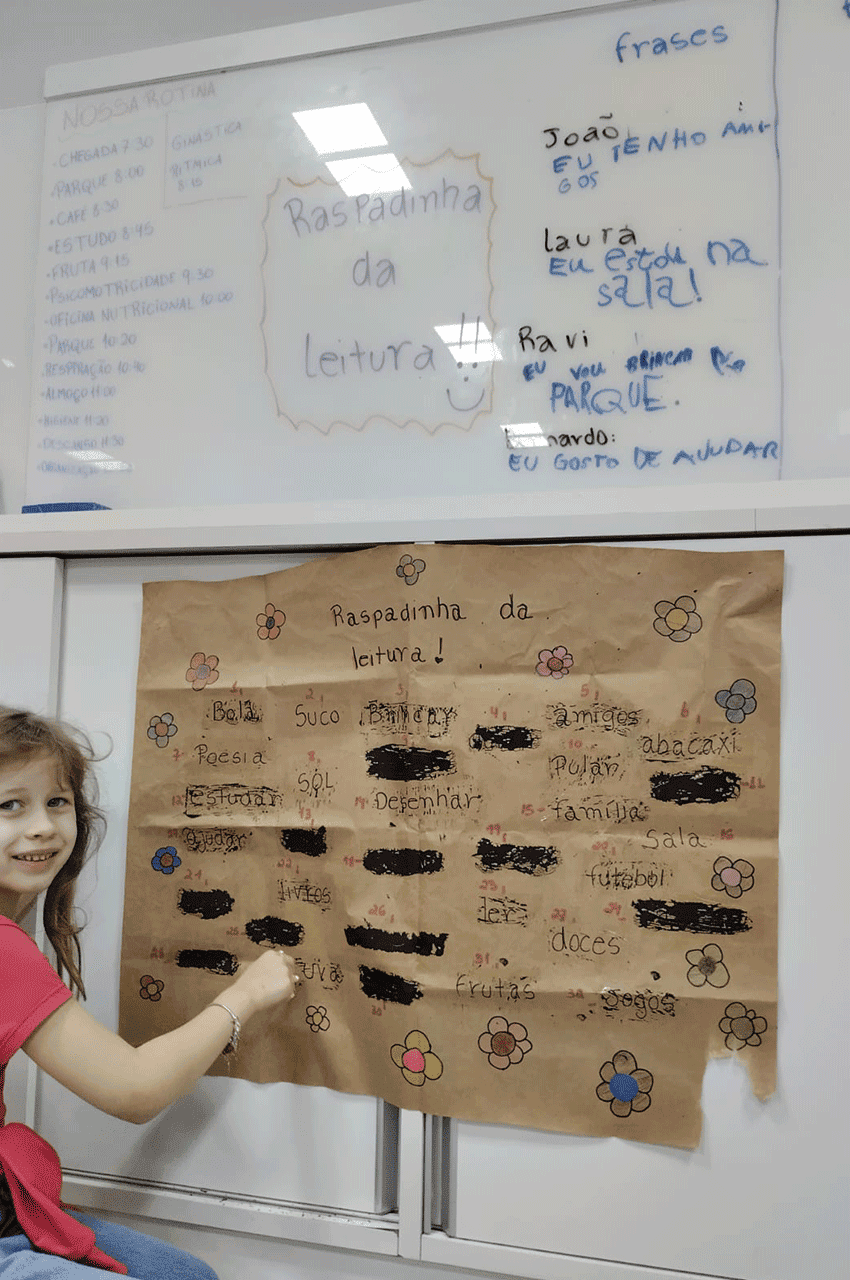 NOSSA ROTINA
• CHEGADA 7:30
• PARQUE 8:00
• CAFÉ 8:30
• ESTUDO 8:45
• FRUTA 9:15
• PSICOMOTRICIDADE 9:30
• OFICINA NUTRICIONAL 10:00
• PARQUE 10:20
• RESPIRAÇÃO 10:40
• ALMOÇO 11:00
• HIGIENE 11:20
• DESCANSO 11:50
GINÁSTICA
RÍTMICA
8:15
Raspadinha
da
leitura!!
frases
João:
EU TENHO AMI-
GOS
Laura
EU estou na
sala!
Ravi
EU VOU BRINCAR NO
PARQUE.
EU GOSTO DE AJUDAR
Raspadinha da
leitura!
1 2 3 4 5 6
Bola Suco Brincar amigos abacaxi
7 8 10 11
Poesia SOL Pular
12 14 15
estudar Desenhar família
13 19 16
ajudar Sala
22 18 20
livros futebol
24 23
ler
25 26 27 29
doces
28 31 32
uva frutas Jogos
30